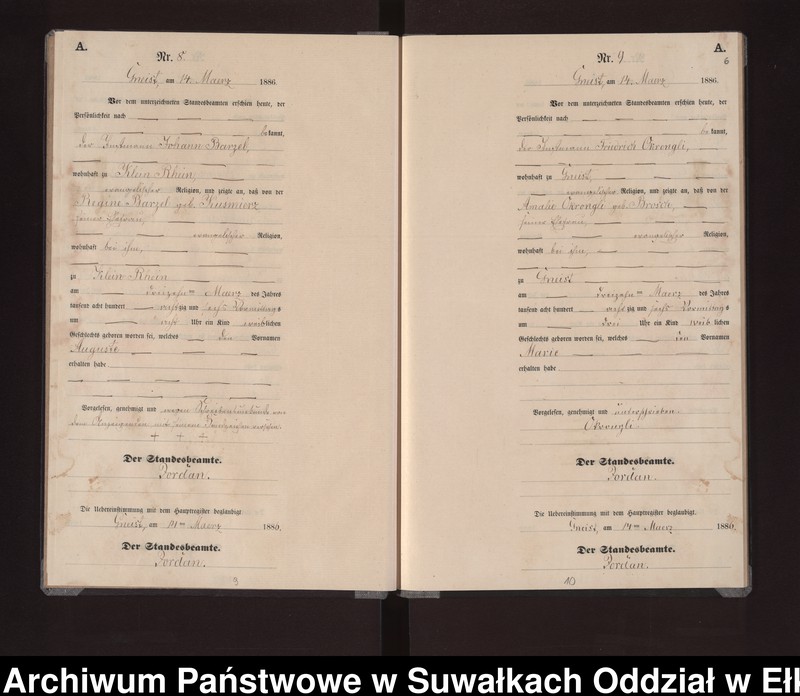 A.
Nr. 8
Gneist, am 14. Maerz 1886.
Vor dem unterzeichneten Standesbeamten erschien heute, der
Persönlichkeit nach
bekannt,
der Instmann Johann Barzel,
wohnhaft zu Klein Rhein
evangelischer Religion, und zeigte an, daß von der
Regine Barzel geb.
seiner Ehefrau,
evangelischer Religion,
wohnhaft bei ihm,
zu Klein Rhein
am dreizehnten Maerz des Jahres
tausend acht hundert achtzig und sechs Vormittags
um acht Uhr ein Kind weiblichen
Geschlechts geboren worden sei, welches den Vornamen
Auguste
erhalten habe
Vorgelesen, genehmigt und wegen von
dem Anzeigenden mit seinem Handzeichen versehen.
+ + +
Der Standesbeamte.
Jordan.
Die Uebereinstimmung mit dem Hauptregister beglaubigt.
Gneist, am 14ten Maerz 1886.
Der Standesbeamte.
Jordan.
9
A.
6
Nr. 9
Gneist, am 14. Maerz 1886.
Vor dem unterzeichneten Standesbeamten erschien heute, der
Persönlichkeit nach
bekannt,
der Instmann Friedrich Okrongli,
wohnhaft zu Gneist,
evangelischer Religion, und zeigte an, daß von der
Amalie Okrongli geb.
seiner Ehefrau,
evangelischer Religion,
wohnhaft bei ihm,
zu Gneist
am dreizehnten Maerz des Jahres
tausend acht hundert achtzig und sechs Vormittags
um drei Uhr ein Kind weiblichen
Geschlechts geboren worden sei, welches den Vornamen
Marie
erhalten habe
Vorgelesen, genehmigt und unterschrieben.
Okrongli
Der Standesbeamte.
Jordan.
Die Uebereinstimmung mit dem Hauptregister beglaubigt.
Gneist, am 14ten Maerz 1886.
Der Standesbeamte.
Jordan.
10
Archiwum Państwowe w Suwałkach Oddział w Eł